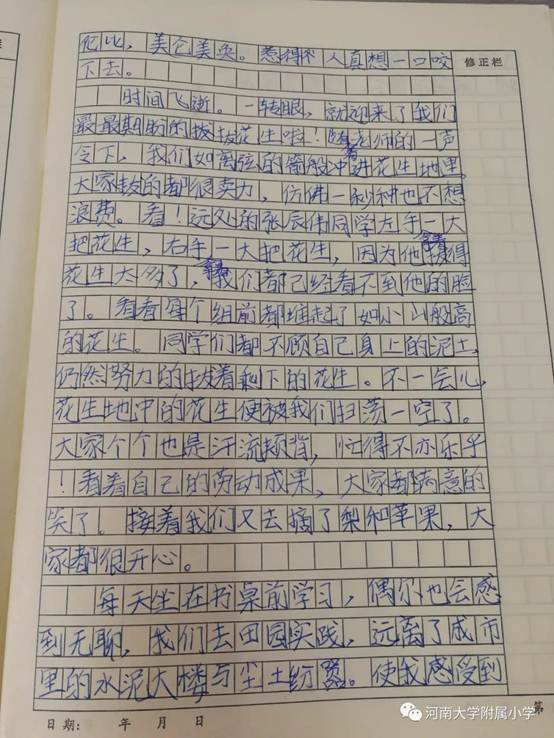 伦比，美仑美奂。惹得令人真想一口咬
下去。
时间飞逝。一转眼，就迎来了我们
最最期盼的拔花生啦！随着老师的一声
令下，我们如离弦的箭般冲进花生地里，
大家拔的都很卖力，仿佛一秒钟也不想
浪费。看！远处的张辰伟同学左手拿着一大
把花生，右手拿着一大把花生，因为他拔得
花生太多了，我们都已经看不到他的脸
了。看着每个组前都堆起了如小山般高
的花生。同学们都不顾自己身上的泥土，
仍然努力的拔着剩下的花生。不一会儿，
花生地中的花生便被我们扫荡一空了。
大家个个也是汗流颊背，忙得不亦乐乎
！看着自己的劳动成果，大家都满意的
笑了。接着我们又去摘了梨和苹果，大
家都很开心。
每天坐在书桌前学习，偶尔也会感
到无聊，我们去田园实践，远离了城市
里的水泥大楼与尘土纷嚣。使我感受到
修正栏
日期： 年 月 日
第
河南大学附属小学